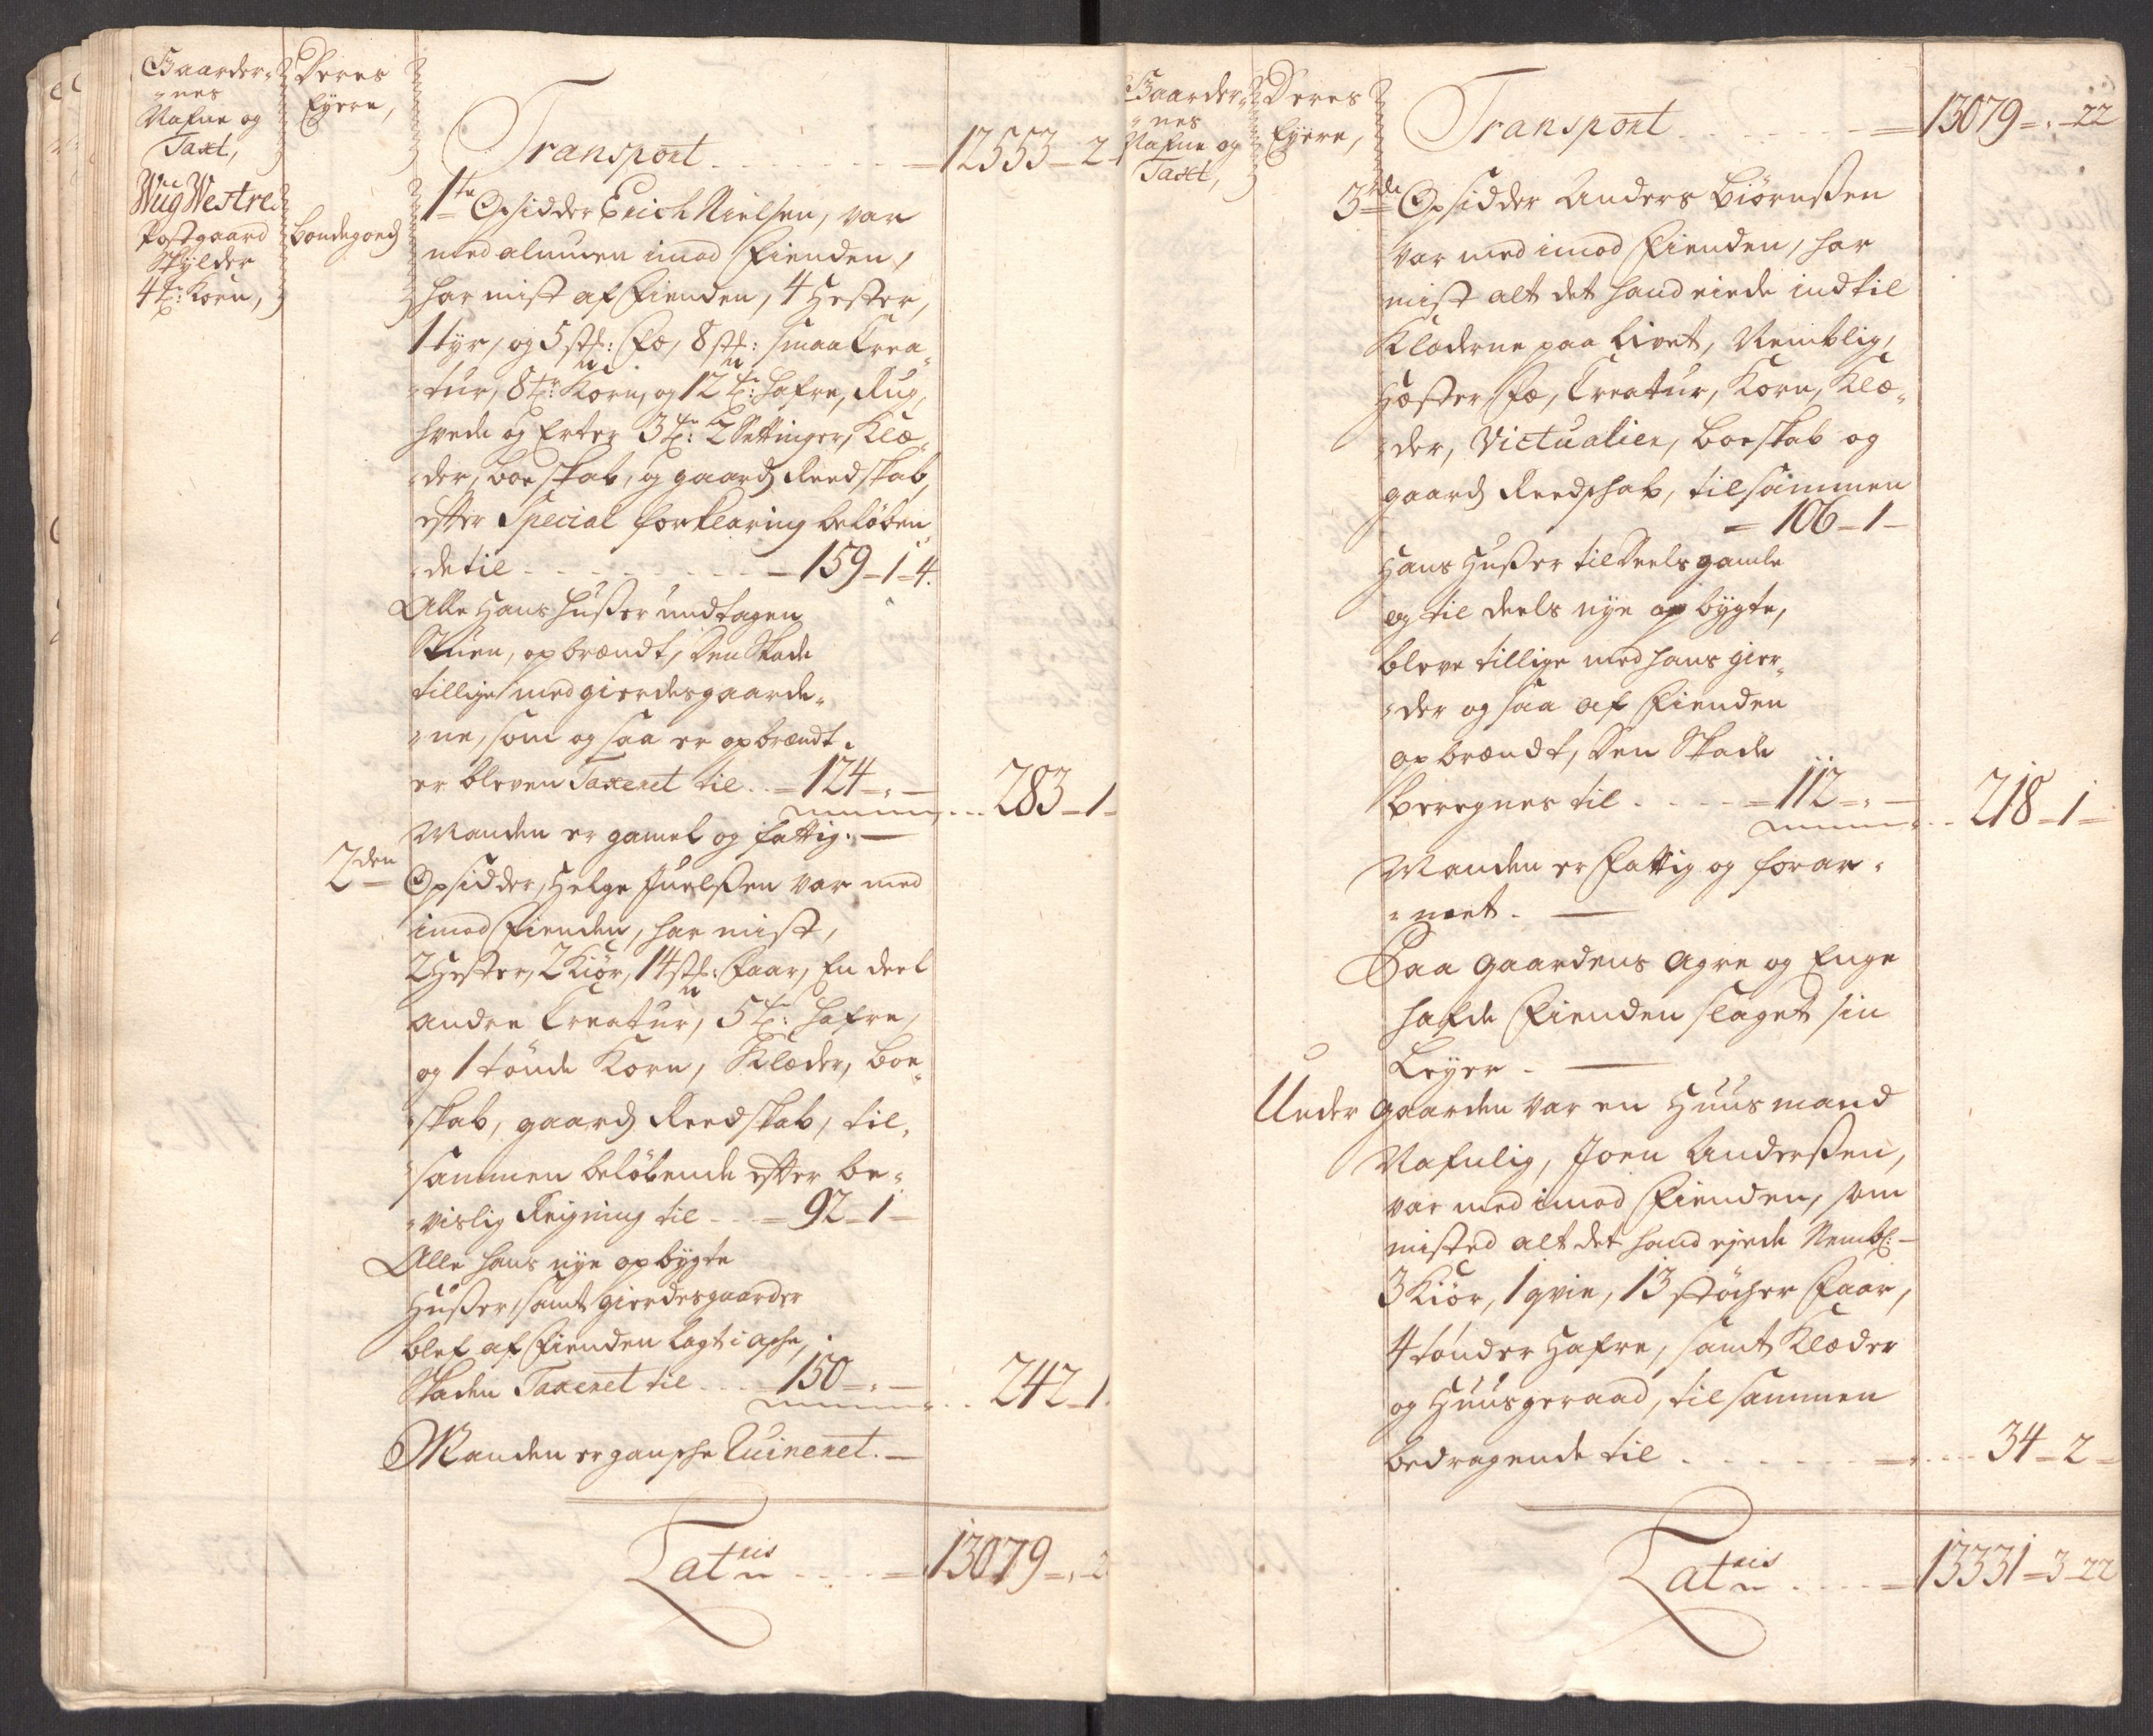 Gaarder-
nes
Nafne og
Taxt,
Deres
Eÿere,
Transport - - - - - 12553 - 2 -
Wüg Westre
Postgaard
Skÿlder
4 tr: Korn,
Bondegoeds
1te Opsidder Erich Nielsen, var
med almuen imod Fienden,
har mist af Fienden, 4 Hester,
1 tÿr, og 5 stk: Fæ, 8 stk: smaa Crea-
-tur, 8 tr: Korn, og 12 tr: Hafre, Rug,
hvede og Erter 3 tr: 2 Settinger, Klæ-
-der, boeskab, og gaards Reedskab,
efter Special forklaring beløben-
-de til - - - - - 159 - 1 - 4.
Alle Hans Hußer undtagen
Stuen, opbrændt, Den Skade
tillige med gierdesgaarde-
-ne, som og saa er opbrændt
er bleven Taxeret til - - 124 - „ -
- - - 283 - 1 -
Manden er gamel og fattig. -
2den Opsidder, Helge Juelßen var med
imod Fienden, har mist,
2 Hester, 2 Kiør, 14 stk: Faar, En deel
andre Creatur, 5 tr: Hafre,
og 1 tønde Korn, Klæder, boe-
-skab, gaards Reedskab, til-
-sammen beløbende efter be-
-vislig Reigning til - - 92 - 1 -
Alle hans nÿe opbÿgte
Hußer, samt gierdesgaarder
blef af Fienden lagt i aske,
Skaden Taxeret til - - 150 - „ -
- - 242 - 1.
Manden er gansche Ruineret. -
Lateris - - - - 13079 - „ - 2
Gaarder-
nes
Nafne og
Taxt,
Deres
Eÿere,
Transport - - - - - 13079 - „ - 22
3die Opsidder Anders Biørnßen
var med imod Fienden, har
mist alt det hand eiede indtil
Klæderne paa Livet, Nemblig,
Hester Fæ, Creatur, Korn, Klæ-
-der, Victualier, boeskab og
gaards Reedschab, tilsammen
- 106 - 1 -
Hans Hußer til Deels gamle
og til deels nÿe opbÿgte,
bleve tillige med hans gier-
-der og saa af Fienden
opbrændt, Den Skade
beregnes til - - - - 112 - „ -
- - 218 - 1 -
Manden er Fattig og forar-
-met. -
Paa gaardens agre og Enge
hafde Fienden slaget sin
Leÿer. -
Under gaarden var en Huusmand
Nafnlig, Joen Anderßen,
var med imod Fienden, som
misted alt det hand ejede Nembl: -
3 Kiør, 1 qvie, 13 støcher Faar,
4 tønder Hafre, samt Klæder
og Huusgeraad, tilsammen
bedragende til - - - - - 34 - 2 -
Lateris - - - - 13331 - 3 - 22